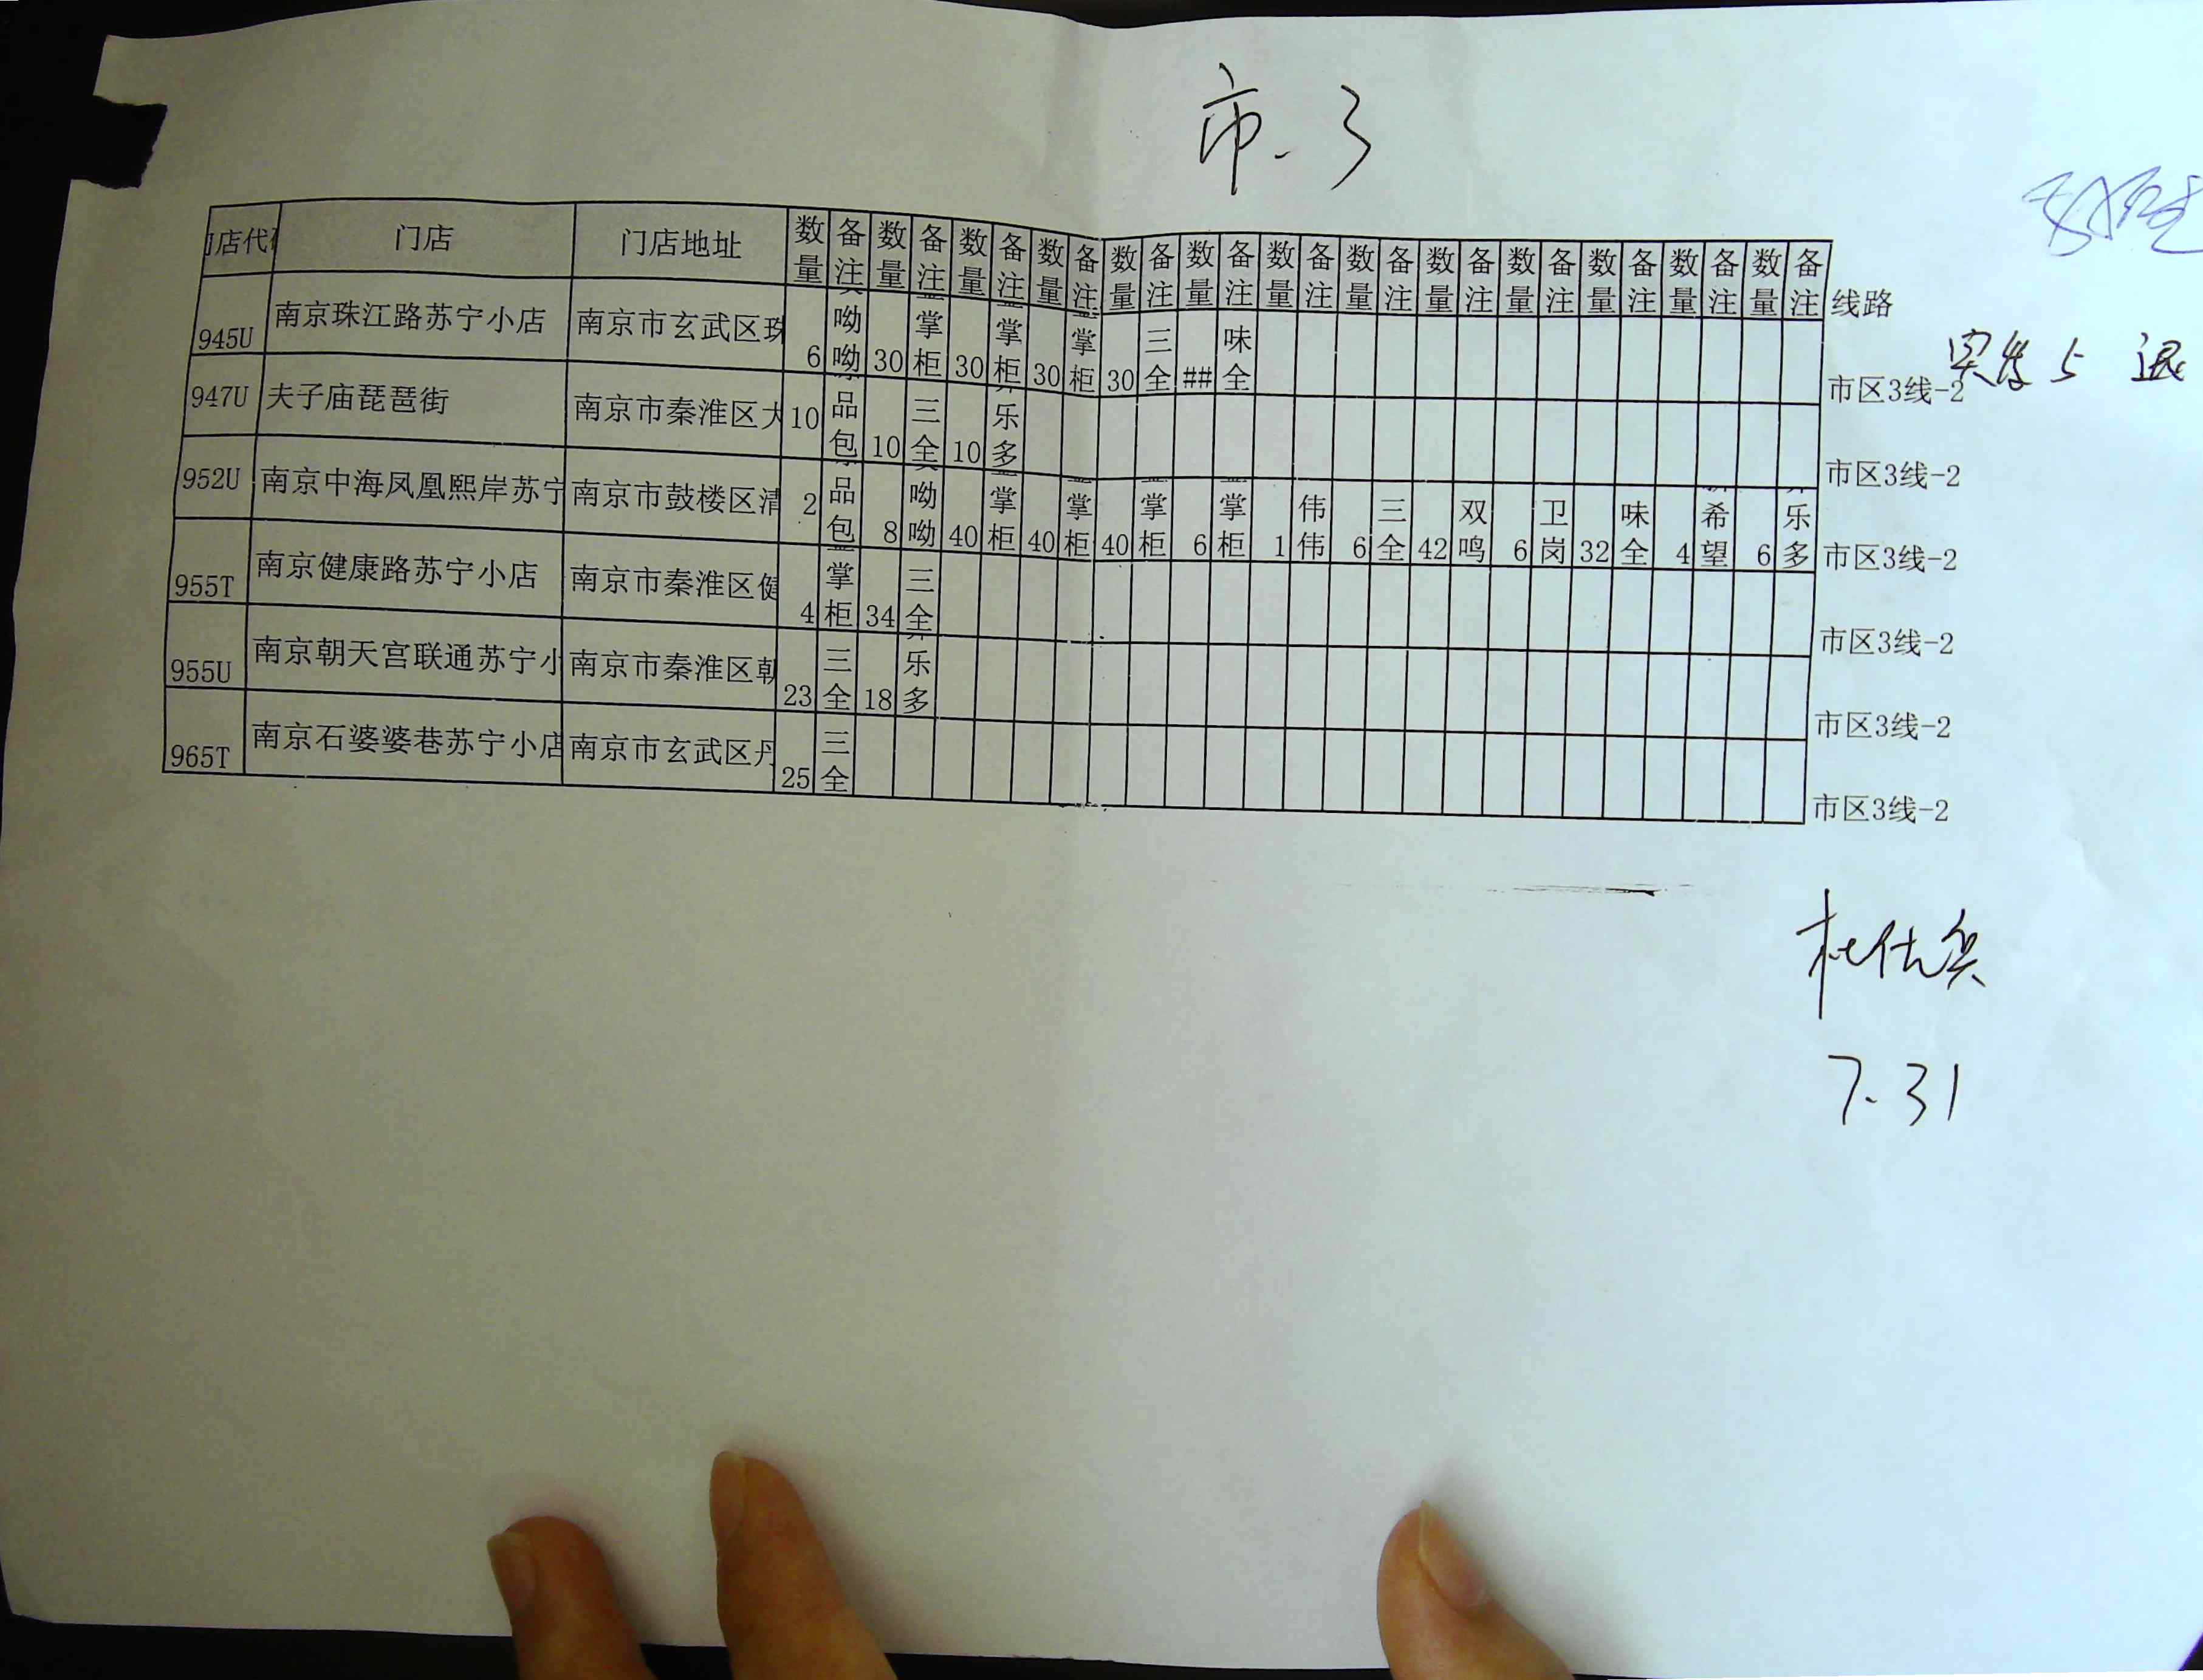 市.3
门店代码 门店 门店地址 数量 备注 数量 备注 数量 备注 数量 备注 数量 备注 数量 备注 数量 备注 数量 备注 数量 备注 数量 备注 数量 备注 数量 备注 数量 备注 线路
945U 南京珠江路苏宁小店 南京市玄武区珠 6 呦呦 30 掌柜 30 掌柜 30 掌柜 30 三全 ## 味全 市区3线-2
实发5 退
947U 夫子庙琵琶街 南京市秦淮区大 10 品包 10 三全 10 乐多 市区3线-2
952U 南京中海凤凰熙岸苏宁 南京市鼓楼区清 2 品包 8 呦呦 40 掌柜 40 掌柜 40 掌柜 6 掌柜 1 伟伟 6 三全 42 双鸣 6 卫岗 32 味全 4 希望 6 乐多 市区3线-2
955T 南京健康路苏宁小店 南京市秦淮区健 4 掌柜 34 三全 市区3线-2
955U 南京朝天宫联通苏宁小 南京市秦淮区朝 23 三全 18 乐多 市区3线-2
965T 南京石婆婆巷苏宁小店 南京市玄武区丹 25 三全 市区3线-2
杜仕兵
7.31